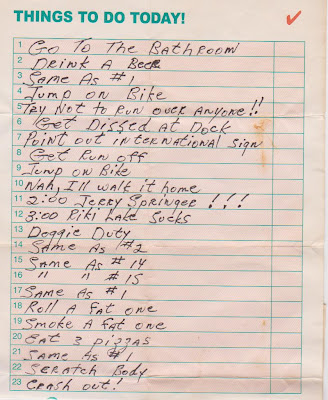 THINGS TO DO TODAY! ✓
1 Go To The Bathroom
2 Drink A Beer
3 Same As #1
4 Jump on Bike
5 Try Not to Run over Anyone!!
6 Get Dissed At Dock
7 Point out international sign
8 Get Run off
9 Jump on Bike
10 Nah, I'll walk it home
11 2:00 Jerry Springer!!!
12 3:00 Riki Lake Sucks
13 Doggie Duty
14 Same As #2
15 Same As #14
16 " " #15
17 Same As #1
18 Roll A fat one
19 Smoke A fat one
20 Eat 3 pizzas
21 Same As #1
22 Scratch Body
23 Crash out!